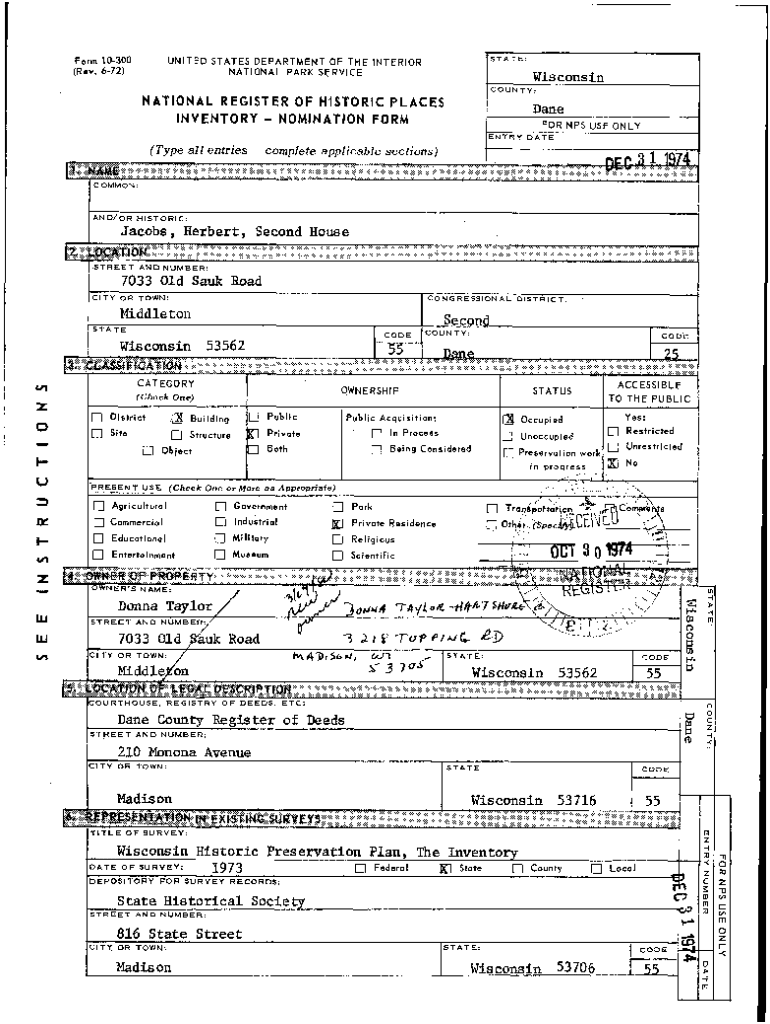 Form 10-300 UNITED STATES DEPARTMENT OF THE INTERIOR
(Rev. 6-72) NATIONAL PARK SERVICE
NATIONAL REGISTER OF HISTORIC PLACES
INVENTORY - NOMINATION FORM
(Type all entries complete applicable sections)
STATE:
Wisconsin
COUNTY:
Dane
FOR NPS USE ONLY
ENTRY DATE
DEC 31 1974
1. NAME
COMMON:
AND/OR HISTORIC:
Jacobs, Herbert, Second House
2. LOCATION
STREET AND NUMBER:
7033 Old Sauk Road
CITY OR TOWN: CONGRESSIONAL DISTRICT:
Middleton Second
STATE CODE COUNTY: CODE
Wisconsin 53562 55 Dane 25
3. CLASSIFICATION
CATEGORY
(Check One)
OWNERSHIP
STATUS
ACCESSIBLE
TO THE PUBLIC
District X Building Public Public Acquisition: X Occupied Yes:
Site Structure X Private In Process Unoccupied Restricted
Object Both Being Considered Preservation work Unrestricted
in progress X No
PRESENT USE (Check One or More as Appropriate)
Agricultural Government Park Transportation Comments
Commercial Industrial X Private Residence Other (Specify)
Educational Military Religious
Entertainment Museum Scientific
RECEIVED
OCT 30 1974
NATIONAL
REGISTER
4. OWNER OF PROPERTY
OWNER'S NAME:
Donna Taylor new owner DONNA TAYLOR-HARTSHORE
STREET AND NUMBER:
7033 Old Sauk Road 3218 TOPPING RD
CITY OR TOWN: MADISON, WI STATE: CODE
Middleton 53705 Wisconsin 53562 55
5. LOCATION OF LEGAL DESCRIPTION
COURTHOUSE, REGISTRY OF DEEDS, ETC:
Dane County Register of Deeds
STREET AND NUMBER:
210 Monona Avenue
CITY OR TOWN: STATE CODE
Madison Wisconsin 53716 55
6. REPRESENTATION IN EXISTING SURVEYS
TITLE OF SURVEY:
Wisconsin Historic Preservation Plan, The Inventory
DATE OF SURVEY: 1973 Federal X State County Local
DEPOSITORY FOR SURVEY RECORDS:
State Historical Society
STREET AND NUMBER:
816 State Street
CITY OR TOWN: STATE: CODE
Madison Wisconsin 53706 55
SEE INSTRUCTIONS
STATE:
Wisconsin
COUNTY:
Dane
ENTRY NUMBER
DATE
FOR NPS USE ONLY
DEC 31 1974